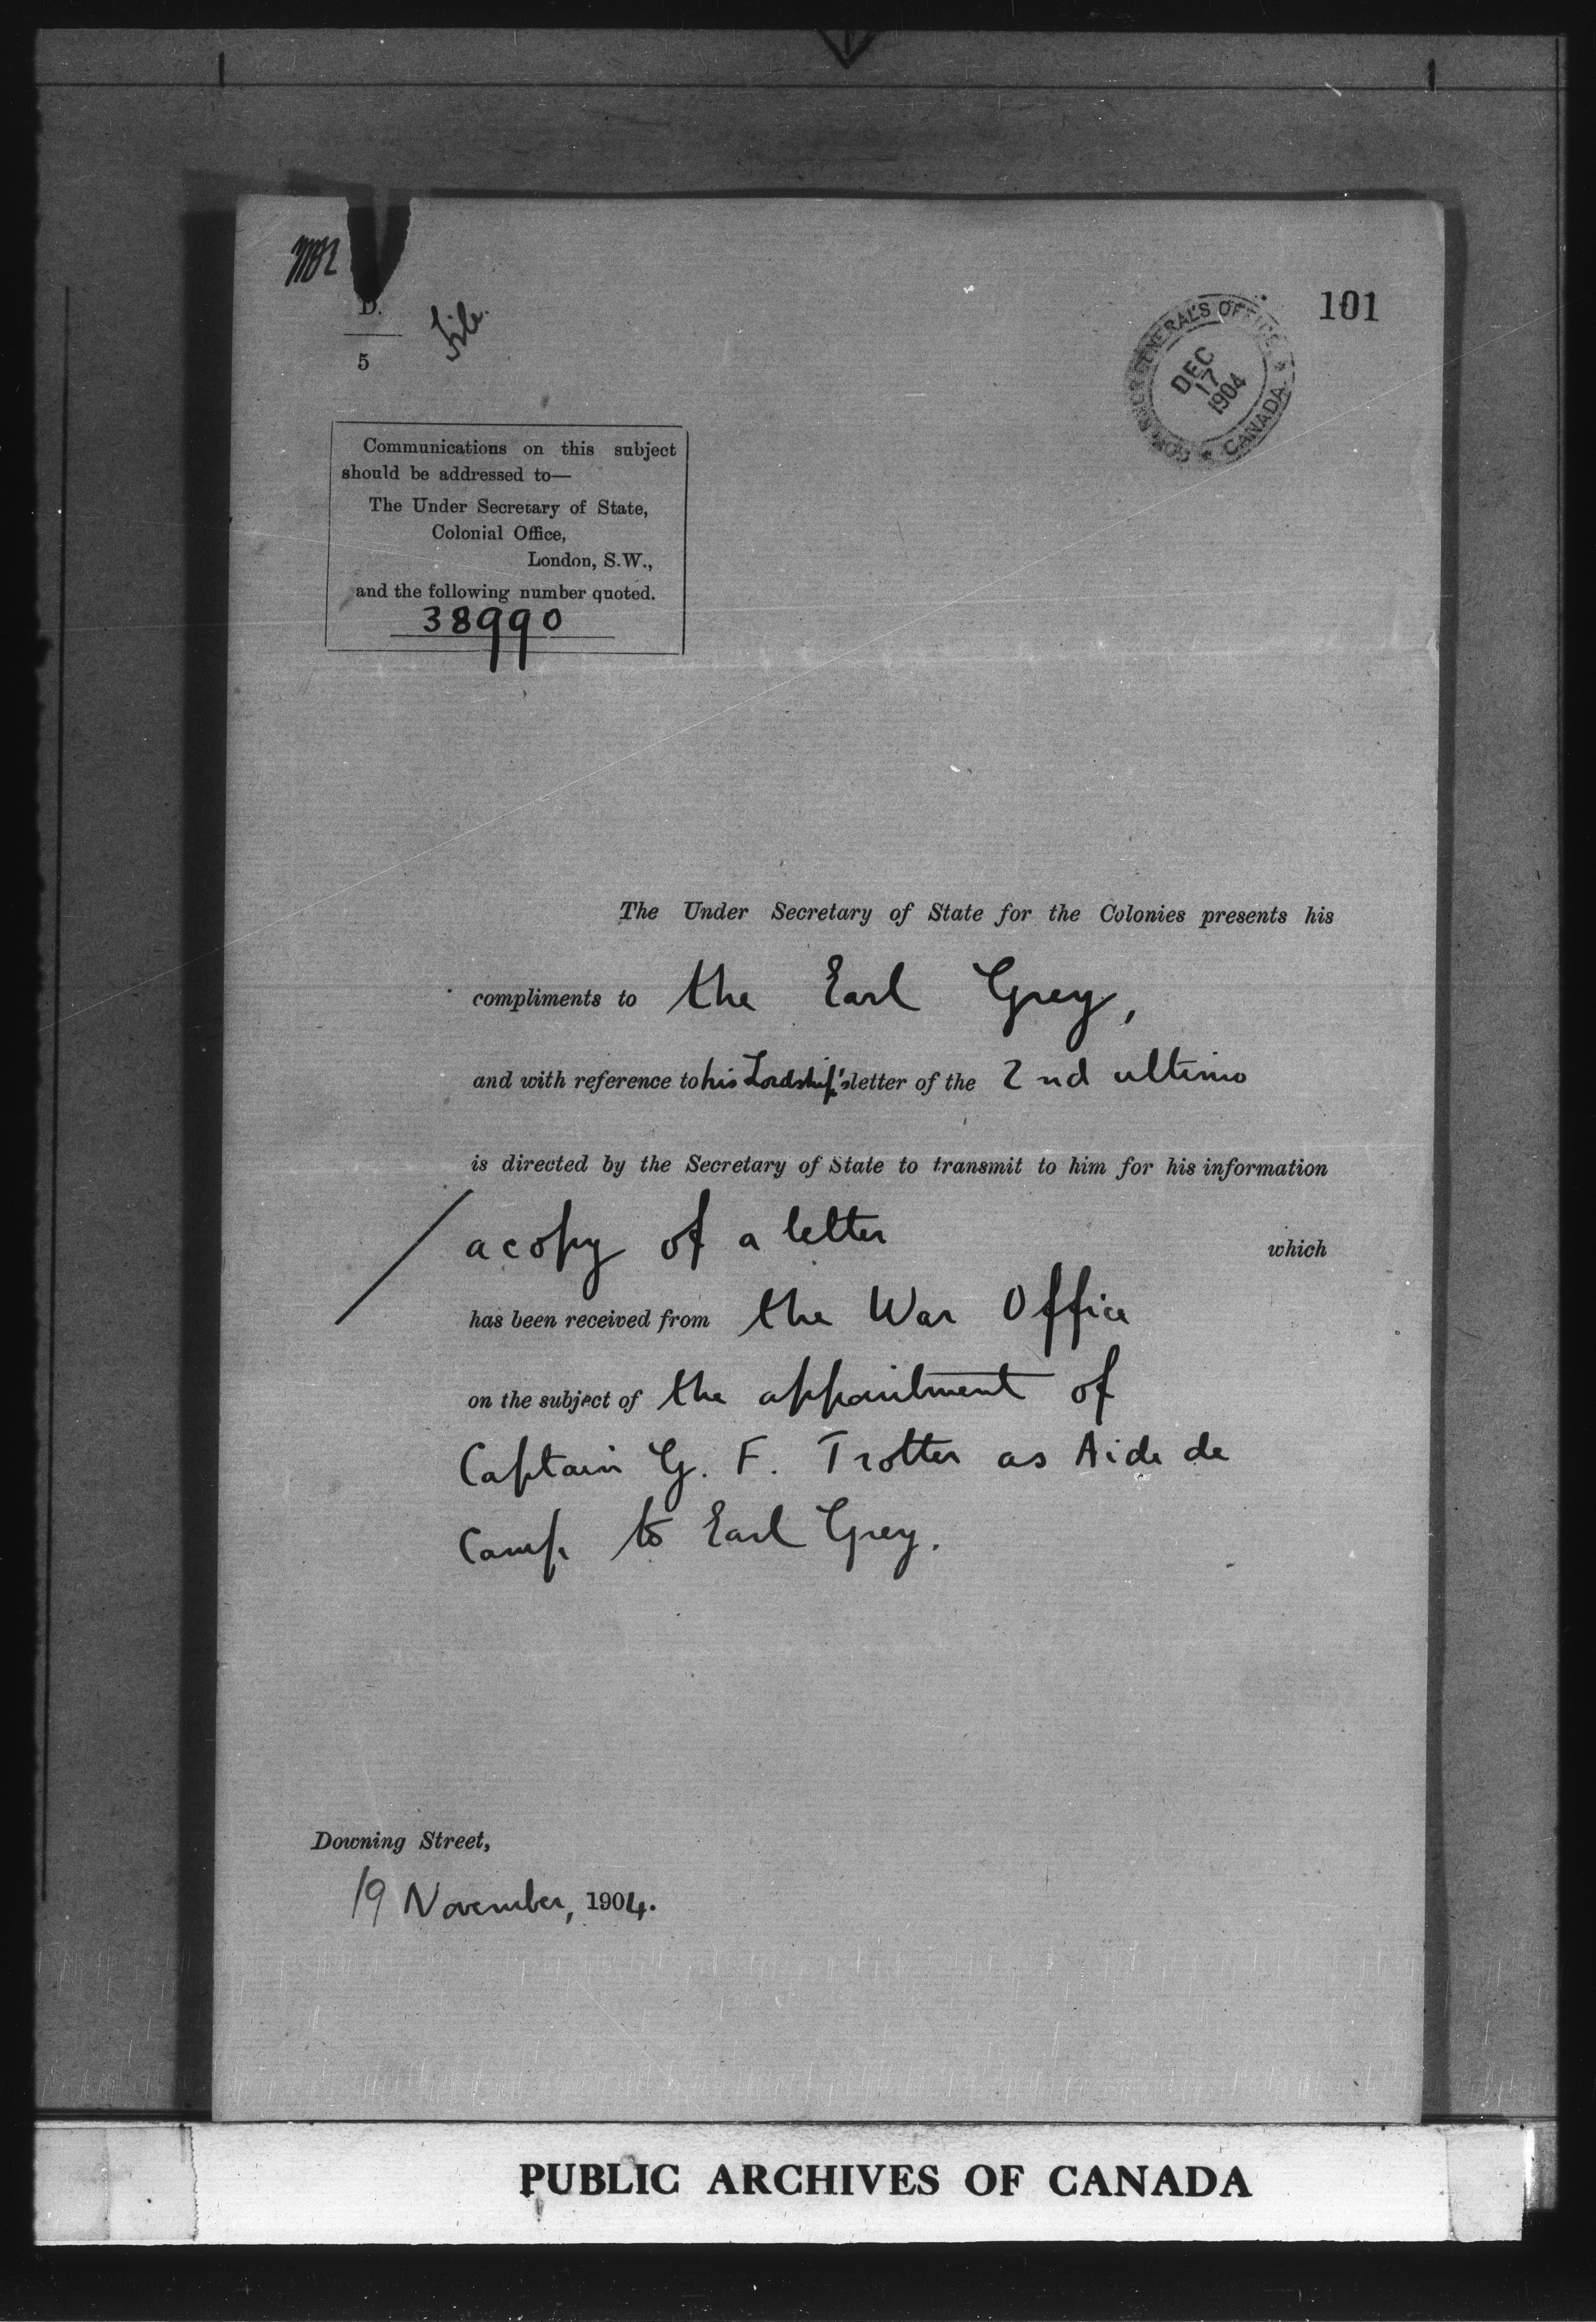 D.
5
File.
101
GOVERNOR GENERAL'S OFFICE
CANADA
DEC
17
1904
Communications on this subject
should be addressed to—
The Under Secretary of State,
Colonial Office,
London, S.W.,
and the following number quoted.
38990
The Under Secretary of State for the Colonies presents his
compliments to the Earl Grey,
and with reference to his Lordship's letter of the 2nd ultimo
is directed by the Secretary of State to transmit to him for his information
/ a copy of a letter which
has been received from the War Office
on the subject of the appointment of
Captain G. F. Trotter as Aide de
Camp to Earl Grey.
Downing Street,
19 November, 1904.
PUBLIC ARCHIVES OF CANADA